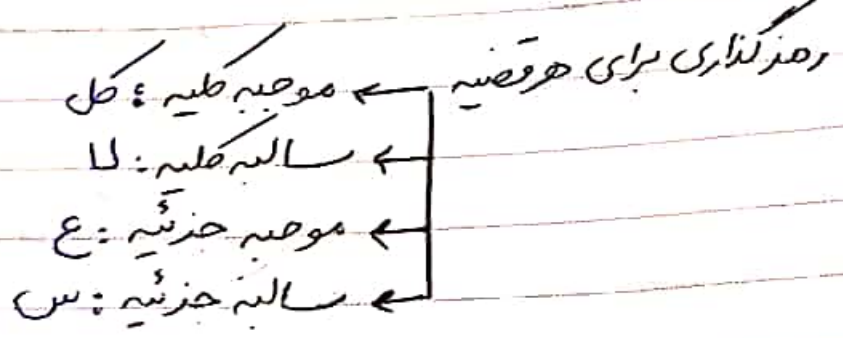 رمزگذاری برای هر قضیه ← موجبه کلیه : کل
← سالبه کلیه : لا
← موجبه جزئیه : ع
← سالبه جزئیه : س